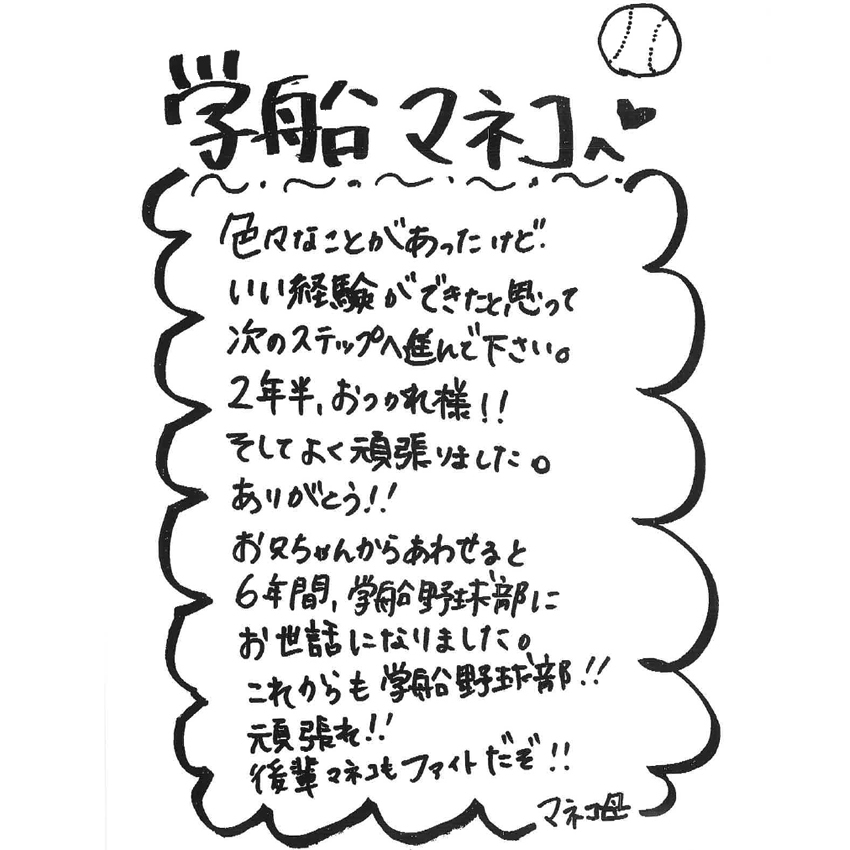 学船マネコへ
色々なことがあったけど
いい経験ができたと思って
次のステップへ進んで下さい。
2年半、おつかれ様!!
そしてよく頑張りました。
ありがとう!!
お兄ちゃんからあわせると
6年間、学船野球部に
お世話になりました。
これからも学船野球部!!
頑張れ!!
後輩マネコもファイトだぞ!!
マネコ母